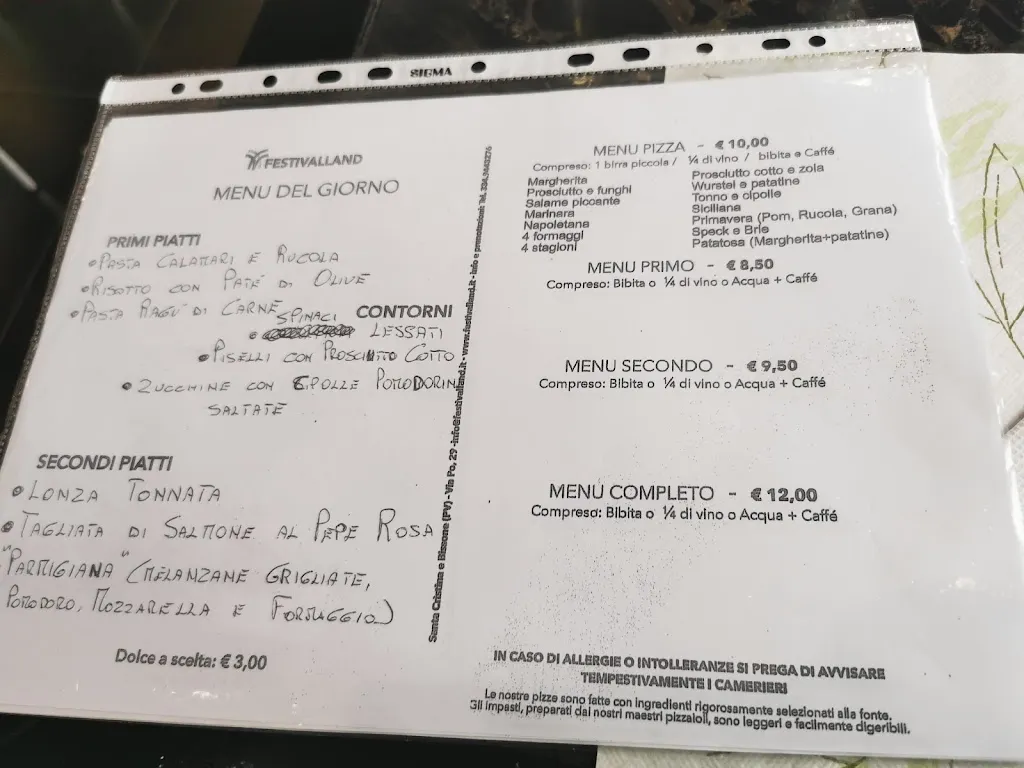 SIGMA
FESTIVALLAND
MENU DEL GIORNO
PRIMI PIATTI
PASTA CALAMARI E RUCOLA
RISOTTO CON PATE' DI OLIVE
PASTA RAGU' DI CARNE
CONTORNI
SPINACI LESSATI
PISELLI CON PROSCIUTTO COTTO
ZUCCHINE CON CIPOLLE POMODORIN
SALTATE
SECONDI PIATTI
LONZA TONNATA
TAGLIATA DI SALMONE AL PEPE ROSA
"PARMIGIANA" (MELANZANE GRIGLIATE,
POMODORO, MOZZARELLA E FORMAGGIO)
Dolce a scelta: € 3,00
Santa Cristina e Bissone (PV) - Via Po, 29 - info@festivalland.it - www.festivalland.it - Info e prenotazioni: Tel.
MENU PIZZA - € 10,00
Compreso: 1 birra piccola / ¼ di vino / bibita e Caffé
Margherita
Prosciutto e funghi
Salame piccante
Marinara
Napoletana
4 formaggi
4 stagioni
Prosciutto cotto e zola
Wurstel e patatine
Tonno e cipolle
Siciliana
Primavera (Pom, Rucola, Grana)
Speck e Brie
Patatosa (Margherita+patatine)
MENU PRIMO - € 8,50
Compreso: Bibita o ¼ di vino o Acqua + Caffé
MENU SECONDO - € 9,50
Compreso: Bibita o ¼ di vino o Acqua + Caffé
MENU COMPLETO - € 12,00
Compreso: Bibita o ¼ di vino o Acqua + Caffé
IN CASO DI ALLERGIE O INTOLLERANZE SI PREGA DI AVVISARE
TEMPESTIVAMENTE I CAMERIERI
Le nostre pizze sono fatte con ingredienti rigorosamente selezionati alla fonte.
Gli impasti, preparati dai nostri maestri pizzaioli, sono leggeri e facilmente digeribili.